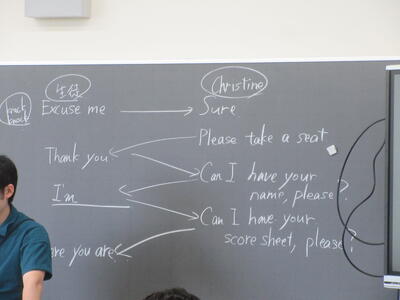 生徒 Christine
knock knock Excuse me Sure
Please take a seat
Thank you
Can I have your
name, please?
I'm
Can I have your
score sheet, please?
ere you are.